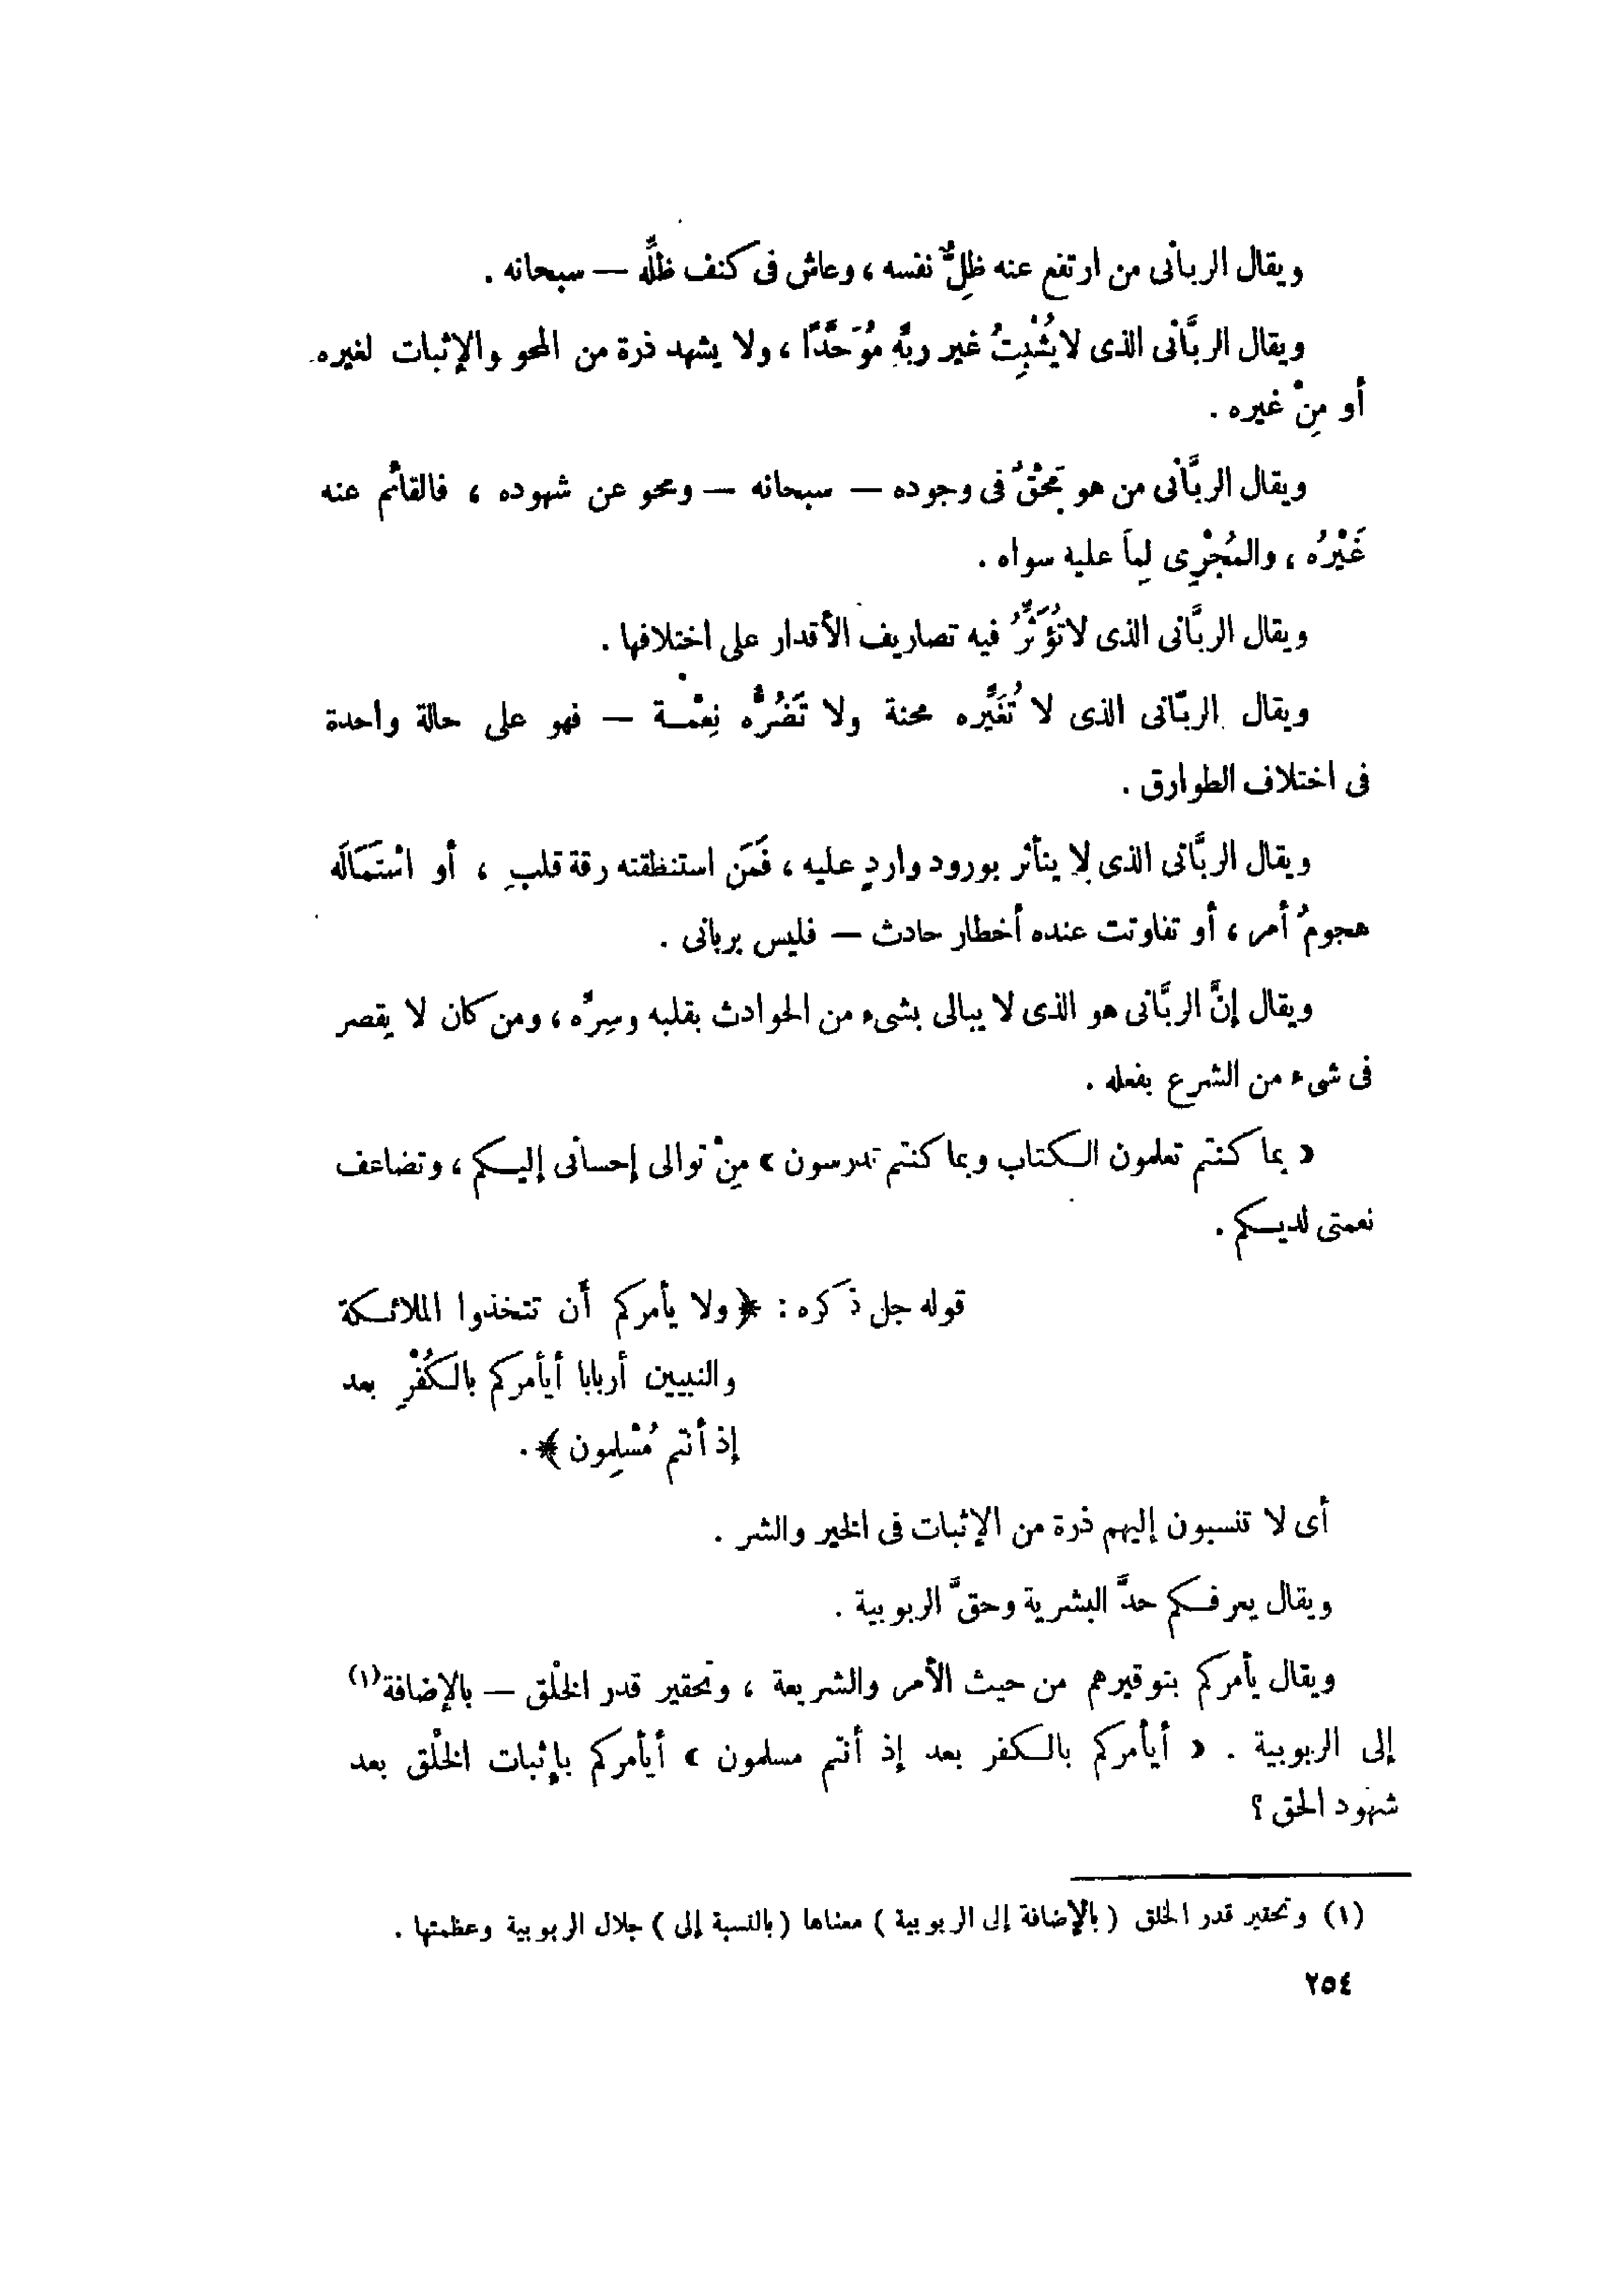 ويقال الربانى من ارتفع عنه ظِلُّ نفسه ، وعاش فى كنف ظلِّه — سبحانه .
ويقال الربَّانى الذى لا يُثْبِتُ غير ربِّه مُوَحِّدًا ، ولا يشهد ذرة من المحو والإثبات لغيره
أو مِنْ غيره .
ويقال الربَّانى من هو مَحْقٌ فى وجوده — سبحانه — ومحو عن شهوده ، فالقائم عنه
غَيْرُه ، والمُجْرِى لِمَا عليه سواه .
ويقال الربَّانى الذى لا تُؤَثِّرُ فيه تصاريف الأقدار على اختلافها .
ويقال الربّانى الذى لا تُغَيِّره محنة ولا تَضُرُّه نِعْمــة — فهو على حالة واحدة
فى اختلاف الطوارق .
ويقال الربَّانى الذى لا يتأثر بورود واردٍ عليه ، فَمَن استنطقته رقة قلبٍ ، أو اسْتَمَالَه
هجومُ أمر ، أو تفاوتت عنده أخطار حادث — فليس بربانى .
ويقال إنَّ الربَّانى هو الذى لا يبالى بشىء من الحوادث بقلبه وسِرِّه ، ومن كان لا يقصر
فى شىء من الشرع بفعله .
« بما كنتم تعلمون الكتاب وبما كنتم تدرسون » مِنْ توالى إحسانى إليكم ، وتضاعف
نعمتى لديكم .
قوله جل ذكره : ﴿ ولا يأمركم أن تتخذوا الملائكة
والنبيين أربابا أيأمركم بالكُفْرِ بعد
إذ أنتم مُسْلِمون ﴾ .
أى لا تنسبون إليهم ذرة من الإثبات فى الخير والشر .
ويقال يعرفكم حدَّ البشرية وحقَّ الربوبية .
ويقال يأمركم بتوقيرهم من حيث الأمر والشريعة ، وتحقير قدر الخلْق — بالإضافة(١)
إلى الربوبية . « أيأمركم بالكفر بعد إذ أنتم مسلمون » أيأمركم بإثبات الخلْق بعد
شهود الحق ؟
(١) وتحقير قدر الخلق ( بالإضافة إلى الربوبية ) معناها ( بالنسبة إلى ) جلال الربوبية وعظمتها .
٢٥٤